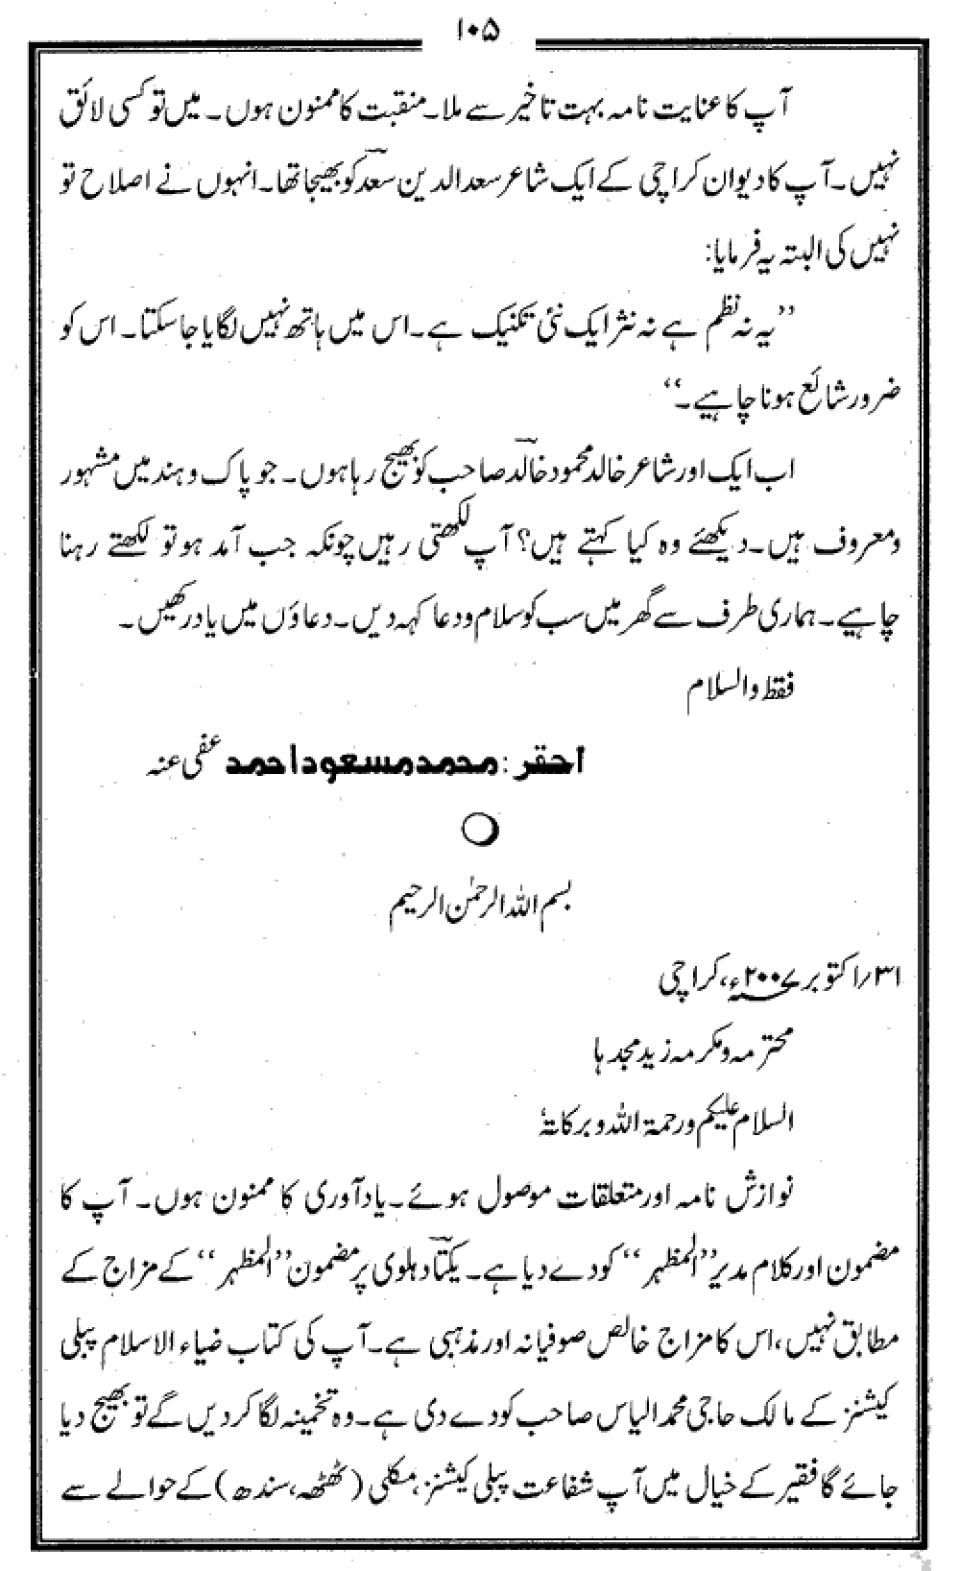 ۱۰۵
آپ کا عنایت نامہ بہت تاخیر سے ملا۔ منقبت کا ممنون ہوں۔ میں تو کسی لائق
نہیں۔ آپ کا دیوان کراچی کے ایک شاعر سعد الدین سعدؔ کو بھیجا تھا۔ انہوں نے اصلاح تو
نہیں کی البتہ یہ فرمایا:
’’یہ نہ نظم ہے نہ نثر ایک نئی تکنیک ہے۔ اس میں ہاتھ نہیں لگایا جا سکتا۔ اس کو
ضرور شائع ہونا چاہیے۔‘‘
اب ایک اور شاعر خالد محمود خالدؔ صاحب کو بھیج رہا ہوں۔ جو پاک و ہند میں مشہور
و معروف ہیں۔ دیکھئے وہ کیا کہتے ہیں؟ آپ لکھتی رہیں چونکہ جب آمد ہو تو لکھتے رہنا
چاہیے۔ ہماری طرف سے گھر میں سب کو سلام و دعا کہہ دیں۔ دعاؤں میں یاد رکھیں۔
فقط والسلام
احقر: محمد مسعود احمد عفی عنہ
بسم اللہ الرحمٰن الرحیم
۳۱/اکتوبر ۲۰۰۷ء، کراچی
محترمہ و مکرمہ زید مجدہا
السلام علیکم ورحمۃ اللہ وبرکاتہٗ
نوازش نامہ اور متعلقات موصول ہوئے۔ یاد آوری کا ممنون ہوں۔ آپ کا
مضمون اور کلام مدیر ’’المظہر‘‘ کو دے دیا ہے۔ یکتاؔ دہلوی پر مضمون ’’المظہر‘‘ کے مزاج کے
مطابق نہیں، اس کا مزاج خالص صوفیانہ اور مذہبی ہے۔ آپ کی کتاب ضیاء الاسلام پبلی
کیشنز کے مالک حاجی محمد الیاس صاحب کو دے دی ہے۔ وہ تخمینہ لگا کر دیں گے تو بھیج دیا
جائے گا فقیر کے خیال میں آپ شفاعت پبلی کیشنز، مکلی (ٹھٹھہ، سندھ) کے حوالے سے